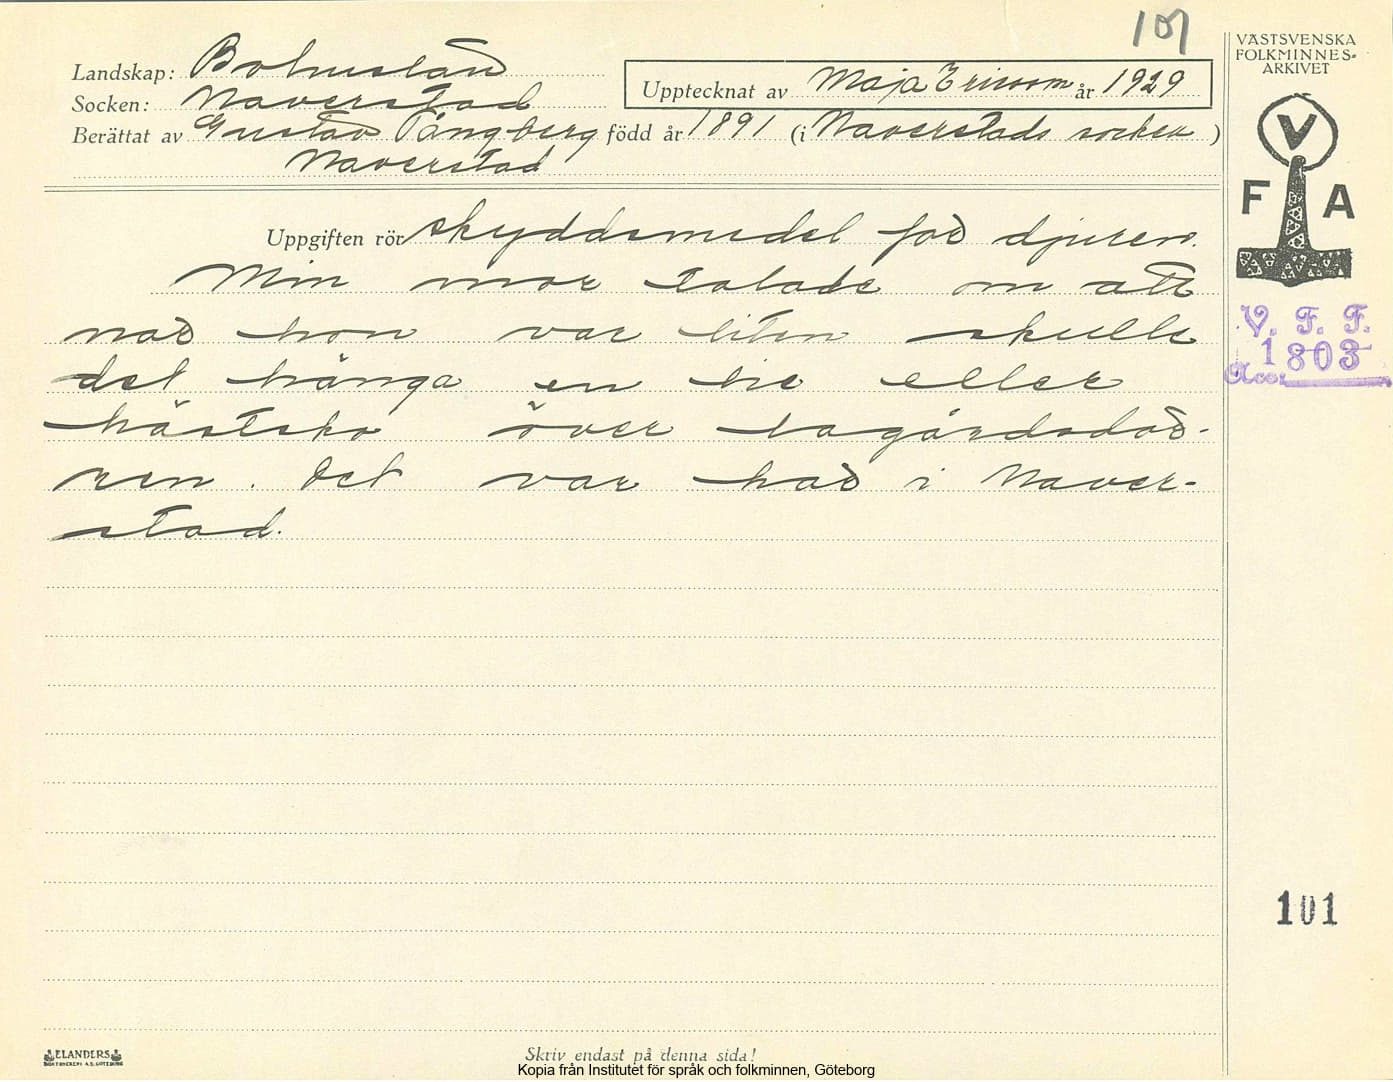 101
VÄSTSVENSKA
FOLKMINNES-
ARKIVET
Landskap: Bohuslän
Upptecknat av Maja Ericson år 1929
Socken: Naverstad
Berättat av Gustav Tångberg född år 1891 (i Naverstads socken)
Naverstad
V
F A
Uppgiften rör skyddsmedel för djuren.
Min mor talade om att
när hon var liten skulle
det hänga en lie eller
hästsko över lagårdsdör-
ren. Det var här i Naver-
stad.
V. F. F.
Acc: 1803
101
ELANDERS
BOKTRYCKERI A.B. GÖTEBORG
Skriv endast på denna sida!
Kopia från Institutet för språk och folkminnen, Göteborg